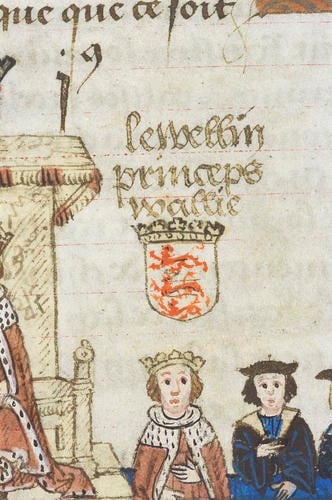 que que ce soit
9
lewellin
princeps
wallie